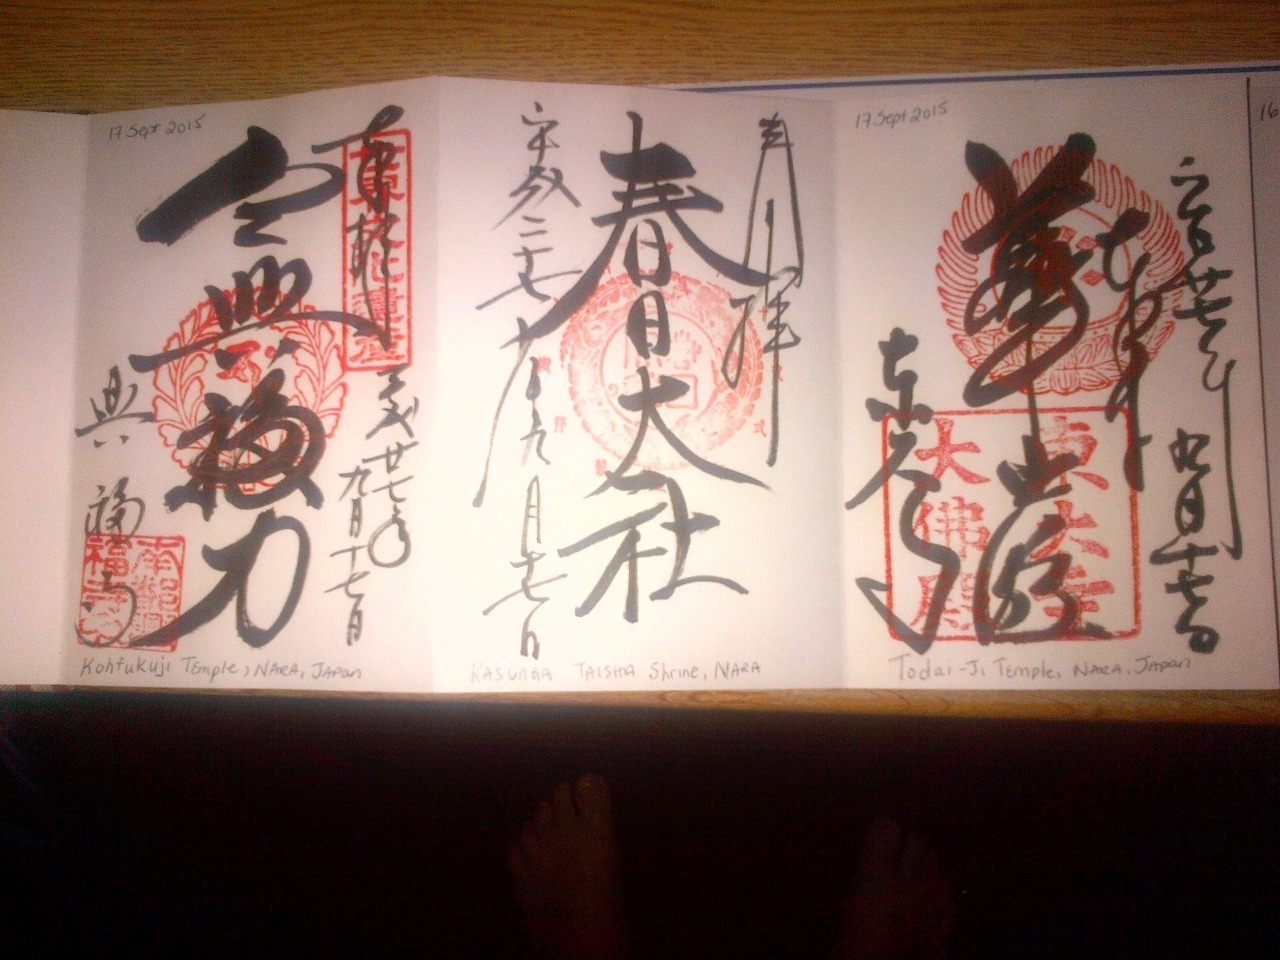 17 Sept 2015
奉拝
平成廿七年
九月十七日
令興福力
興福寺
Kohfukuji Temple, NARA, JAPAN
奉拝
春日大社
平成二十七年九月十七日
KASUNGA TAISHA Shrine, NARA
17 Sept 2015
平成廿七年九月十七日
奉拝
華厳
東大寺
東大寺
大佛殿
Todai-Ji Temple, NARA, JAPAN
16